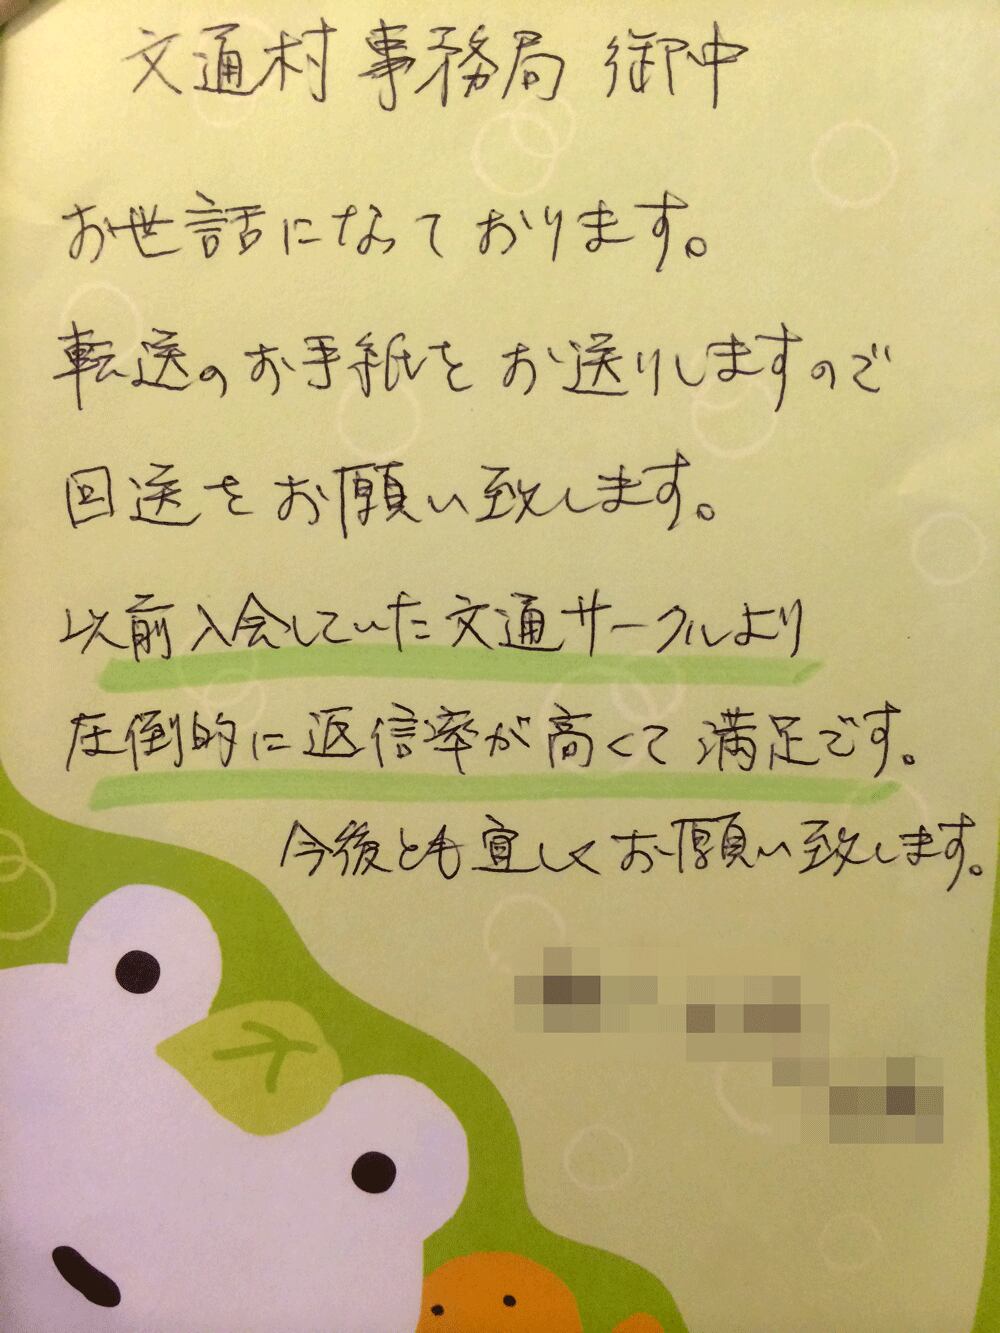 文通村事務局 御中
お世話になっております。
転送のお手紙をお送りしますので
回送をお願い致します。
以前入会していた文通サークルより
圧倒的に返信率が高くて満足です。
今後とも宜しくお願い致します。